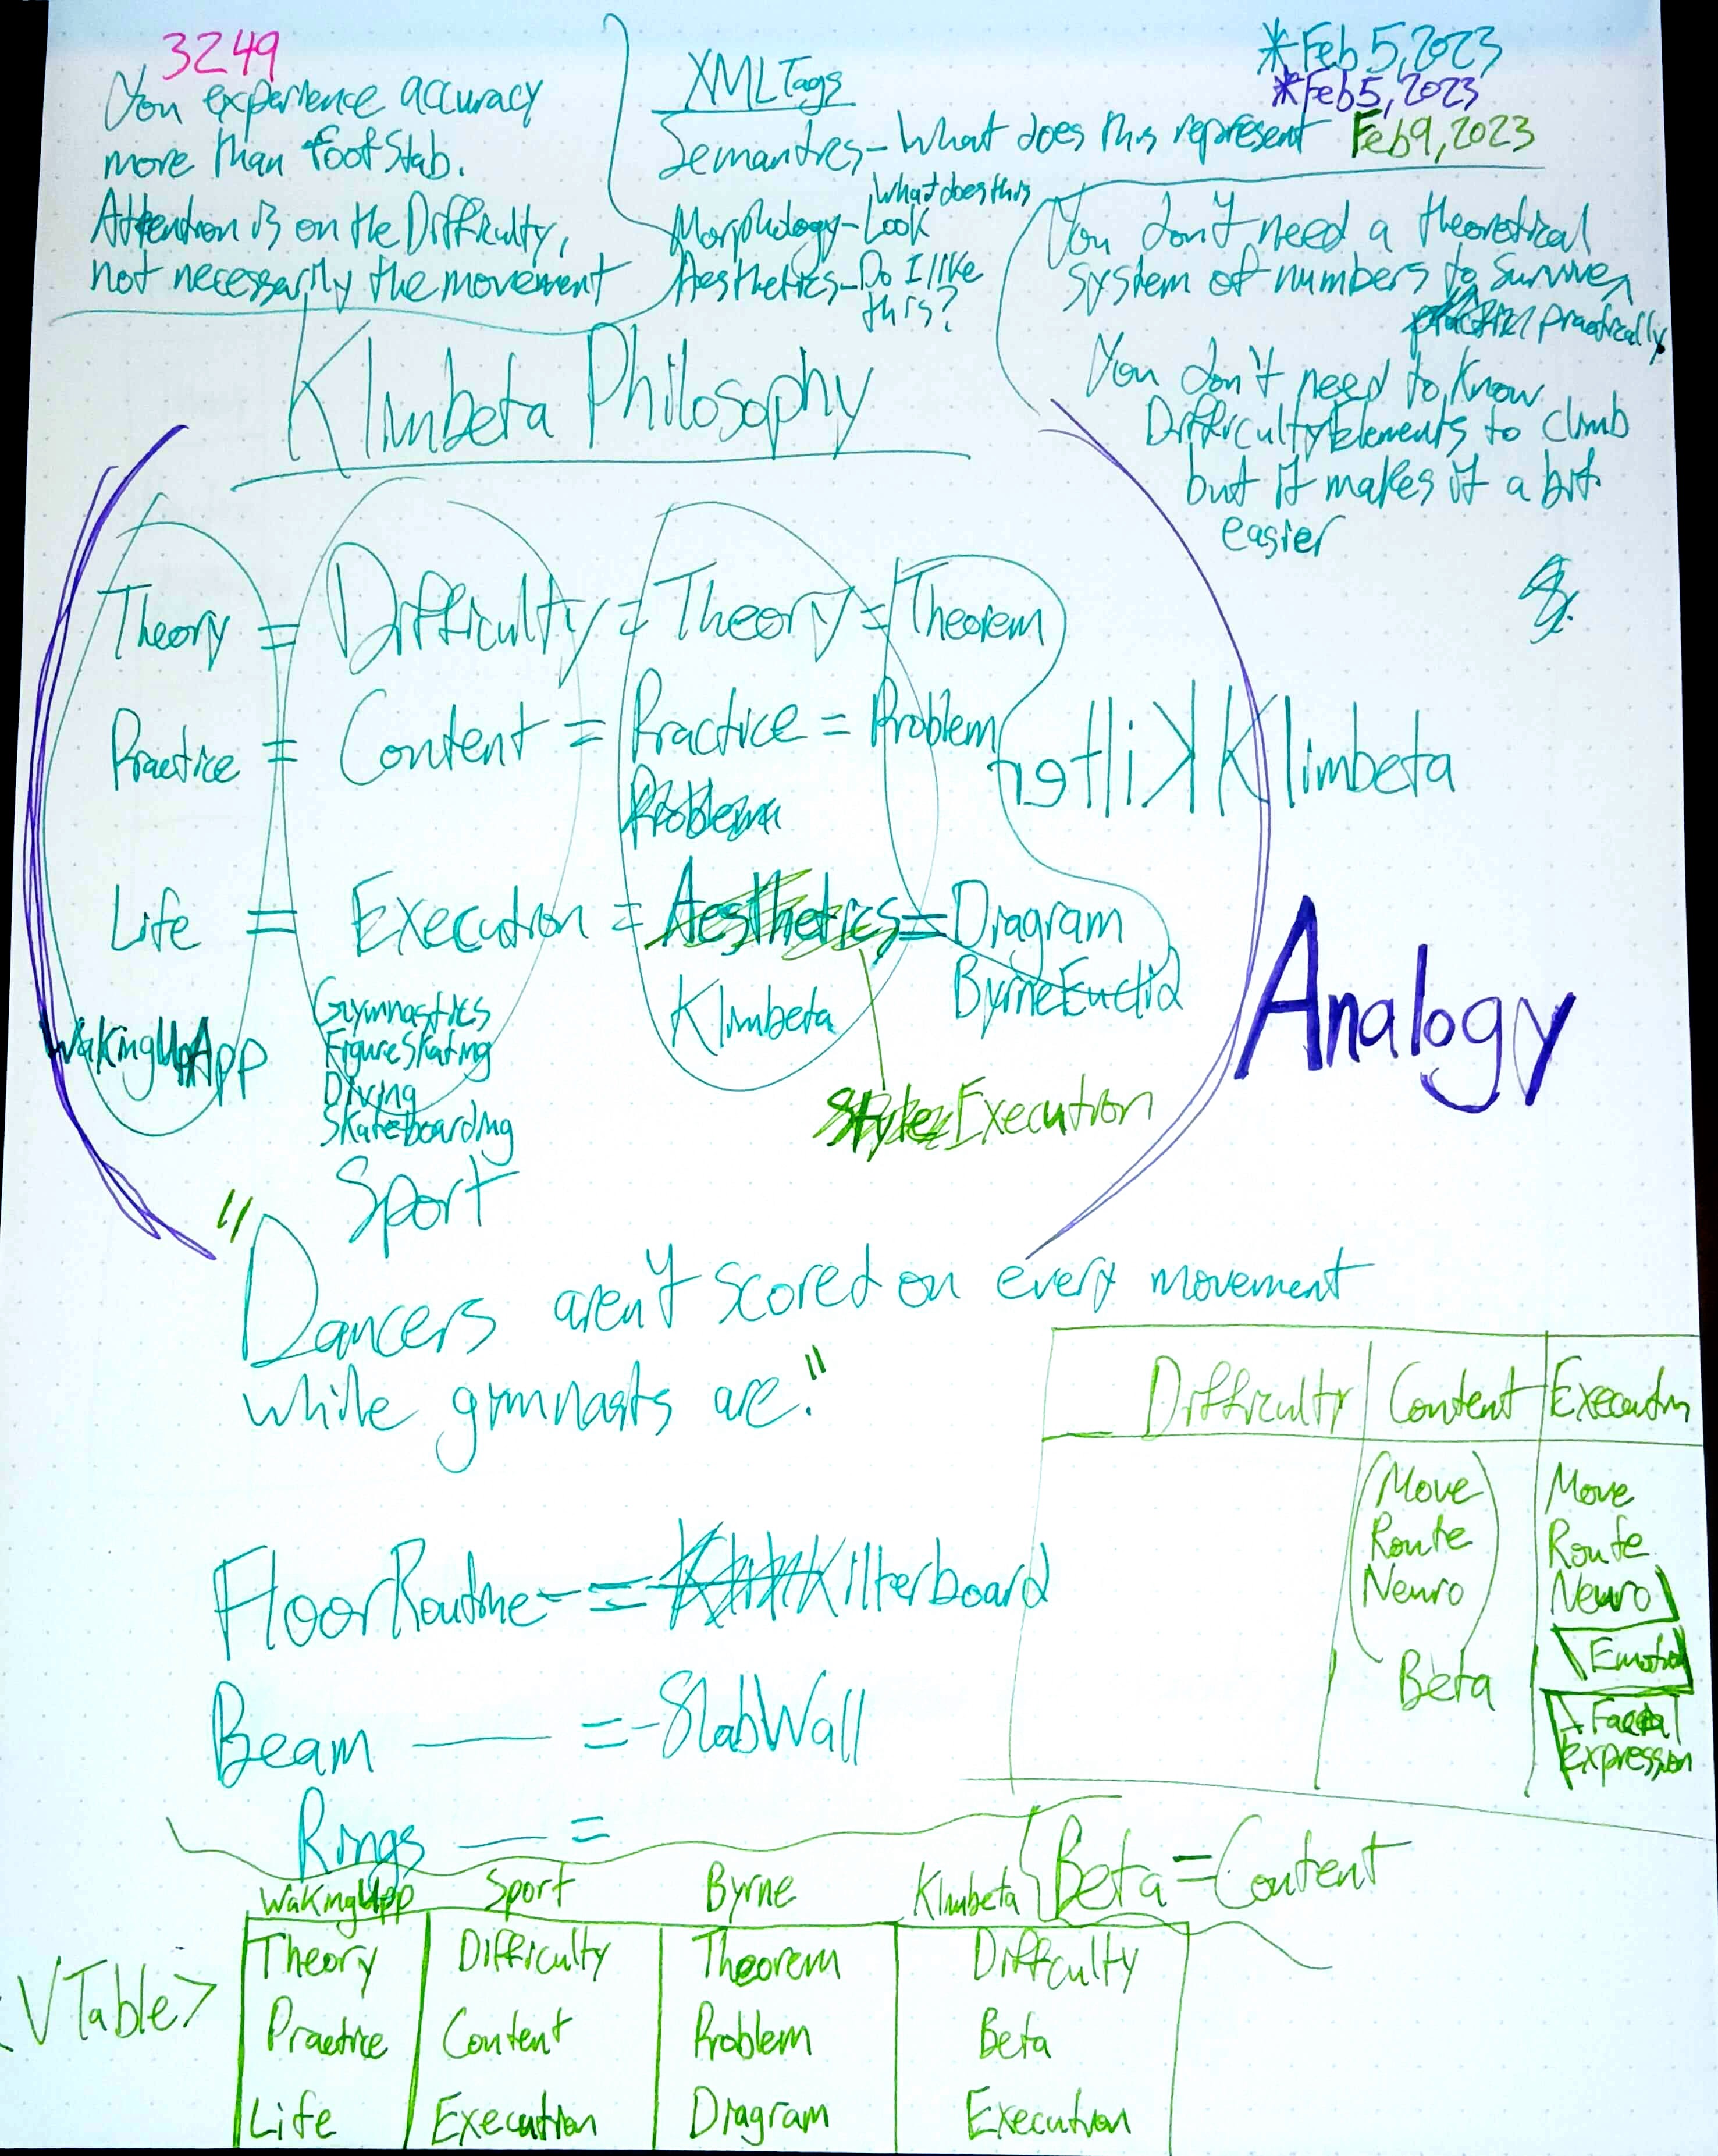 3249
You experience accuracy
more than footstab.
Attention is on the Difficulty,
not necessarily the movement
XML Tags
Semantics - What does this represent
Morphology - What does this
Look
Aesthetics - Do I like
this?
*Feb 5, 2023
*Feb 5, 2023
Feb 9, 2023
You don't need a theoretical
system of numbers to survive
practically.
You don't need to know
Difficulty Elements to climb
but it makes it a bit
easier
Klimbeta Philosophy
Theory = Difficulty = Theory = Theorem
Practice = Content = Practice = Problem
Problem
Kilter Klimbeta
Life = Execution = Aesthetics = Diagram
Klimbeta
ByrneEuclid
WakingUpApp
Gymnastics
FigureSkating
Diving
Skateboarding
Sport
Style Execution
Analogy
"Dancers aren't scored on every movement
while gymnasts are."
FloorRoutine - = Kilterboard
Beam — = - SlabWall
Rings — =
Difficulty Content Execution
Move Move
Route Route
Neuro Neuro
Beta
Emotion
Facial
Expression
Beta = Content
WakingUpp Sport Byrne Klimbeta
<VTable>
Theory Difficulty Theorem Difficulty
Practice Content Problem Beta
Life Execution Diagram Execution